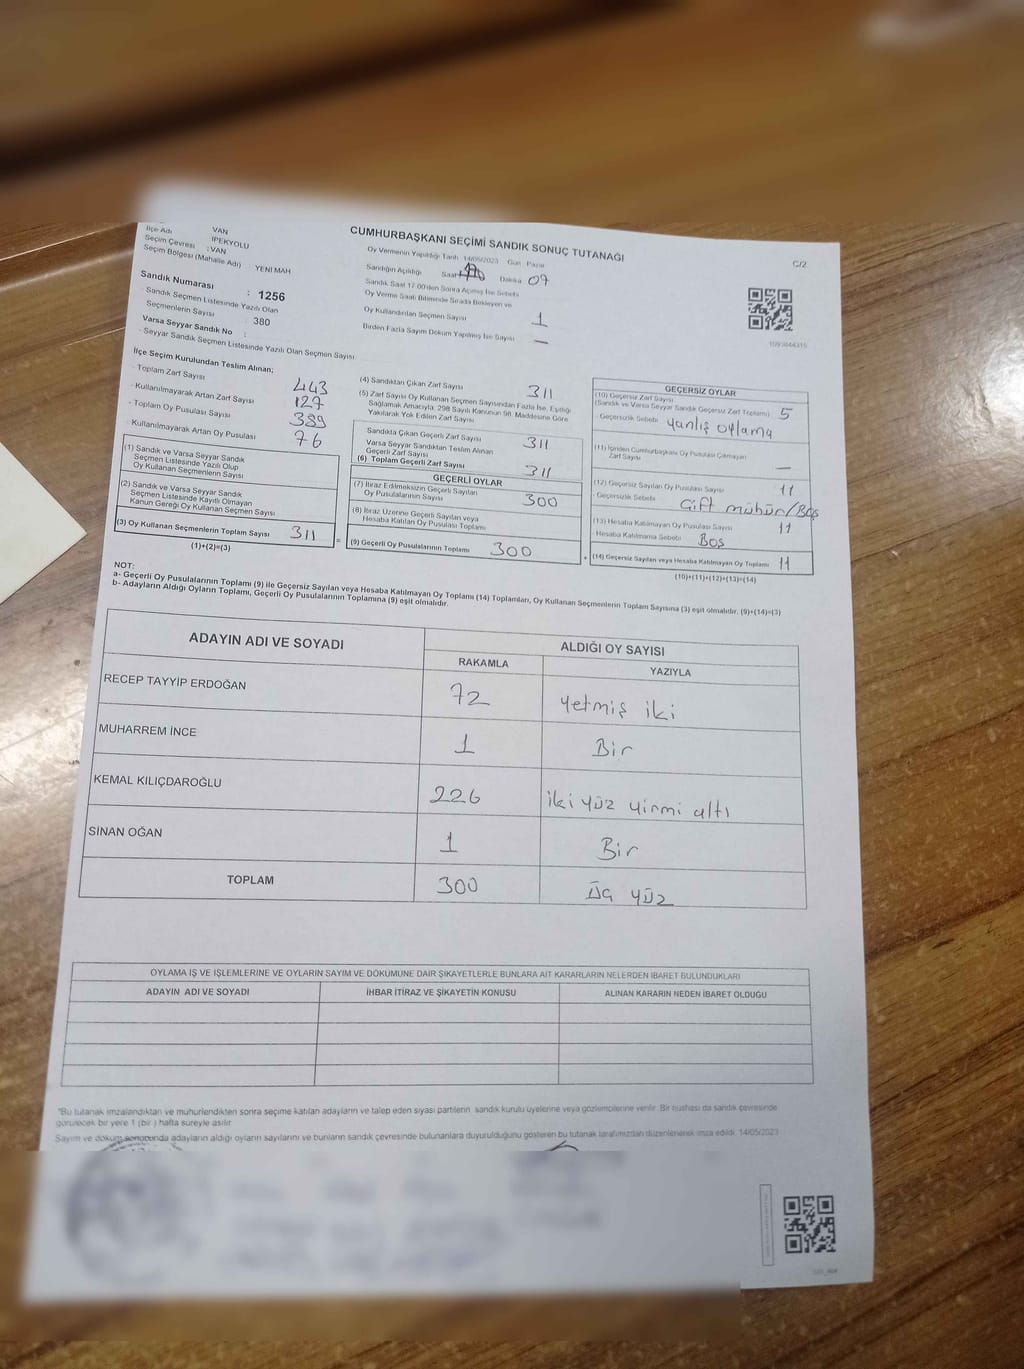 CUMHURBAŞKANI SEÇİMİ SANDIK SONUÇ TUTANAĞI
C/2
İlçe Adı VAN
Seçim Çevresi İPEKYOLU
: VAN
Seçim Bölgesi (Mahalle Adı) : YENİ MAH
Sandık Numarası : 1256
Sandık Seçmen Listesinde Yazılı Olan
Seçmenlerin Sayısı : 380
Varsa Seyyar Sandık No :
- Seyyar Sandık Seçmen Listesinde Yazılı Olan Seçmen Sayısı:
Oy Vermenin Yapıldığı Tarih 14/05/2023 Gün Pazar
Sandığın Açıldığı Saat Dakika 07
Sandık Saat 17:00'den Sonra Açılmış İse Sebebi
Oy Verme Saati Bitiminde Sırada Bekleyen ve
Oy Kullandırılan Seçmen Sayısı 1
Birden Fazla Sayım Döküm Yapılmış İse Sayısı —
İlçe Seçim Kurulundan Teslim Alınan;
- Toplam Zarf Sayısı 443
- Kullanılmayarak Artan Zarf Sayısı 127
- Toplam Oy Pusulası Sayısı 389
- Kullanılmayarak Artan Oy Pusulası 76
(1) Sandık ve Varsa Seyyar Sandık
Seçmen Listesinde Yazılı Olup
Oy Kullanan Seçmenlerin Sayısı
(2) Sandık ve Varsa Seyyar Sandık
Seçmen Listesinde Kayıtlı Olmayan
Kanun Gereği Oy Kullanan Seçmen Sayısı
(3) Oy Kullanan Seçmenlerin Toplam Sayısı 311
(1)+(2)=(3)
(4) Sandıktan Çıkan Zarf Sayısı 311
(5) Zarf Sayısı Oy Kullanan Seçmen Sayısından Fazla İse, Eşitliği
Sağlamak Amacıyla, 298 Sayılı Kanunun 98. Maddesine Göre
Yakılarak Yok Edilen Zarf Sayısı
Sandıkta Çıkan Geçerli Zarf Sayısı 311
Varsa Seyyar Sandıktan Teslim Alınan
Geçerli Zarf Sayısı
(6) Toplam Geçerli Zarf Sayısı 311
GEÇERLİ OYLAR
(7) İtiraz Edilmeksizin Geçerli Sayılan
Oy Pusulalarının Sayısı 300
(8) İtiraz Üzerine Geçerli Sayılan veya
Hesaba Katılan Oy Pusulası Toplamı
(9) Geçerli Oy Pusulalarının Toplamı 300
GEÇERSİZ OYLAR
(10) Geçersiz Zarf Sayısı
(Sandık ve Varsa Seyyar Sandık Geçersiz Zarf Toplamı) 5
- Geçersizlik Sebebi yanlış oylama
(11) İçinden Cumhurbaşkanı Oy Pusulası Çıkmayan
Zarf Sayısı —
(12) Geçersiz Sayılan Oy Pusulası Sayısı 11
- Geçersizlik Sebebi Çift mühür/Boş
(13) Hesaba Katılmayan Oy Pusulası Sayısı 11
Hesaba Katılmama Sebebi Boş
(14) Geçersiz Sayılan veya Hesaba Katılmayan Oy Toplamı 11
(10)+(11)+(12)+(13)=(14)
NOT:
a- Geçerli Oy Pusulalarının Toplamı (9) ile Geçersiz Sayılan veya Hesaba Katılmayan Oy Toplamı (14) Toplamları, Oy Kullanan Seçmenlerin Toplam Sayısına (3) eşit olmalıdır. (9)+(14)=(3)
b- Adayların Aldığı Oyların Toplamı, Geçerli Oy Pusulalarının Toplamına (9) eşit olmalıdır.
ADAYIN ADI VE SOYADI ALDIĞI OY SAYISI
RAKAMLA YAZIYLA
RECEP TAYYİP ERDOĞAN 72 Yetmiş iki
MUHARREM İNCE 1 Bir
KEMAL KILIÇDAROĞLU 226 iki yüz yirmi altı
SİNAN OĞAN 1 Bir
TOPLAM 300 Üç yüz
OYLAMA İŞ VE İŞLEMLERİNE VE OYLARIN SAYIM VE DÖKÜMÜNE DAİR ŞİKAYETLERLE BUNLARA AİT KARARLARIN NELERDEN İBARET BULUNDUKLARI
ADAYIN ADI VE SOYADI İHBAR İTİRAZ VE ŞİKAYETİN KONUSU ALINAN KARARIN NEDEN İBARET OLDUĞU
*Bu tutanak imzalandıktan ve mühürlendikten sonra seçime katılan adayların ve talep eden siyasi partilerin sandık kurulu üyelerine veya gözlemcilerine verilir. Bir nüshası da sandık çevresinde
görülecek bir yere 1 (bir) hafta süreyle asılır.
Sayım ve döküm sonucunda adayların aldığı oyların sayılarını ve bunların sandık çevresinde bulunanlara duyurulduğunu gösteren bu tutanak tarafımızdan düzenlenerek imza edildi. 14/05/2023